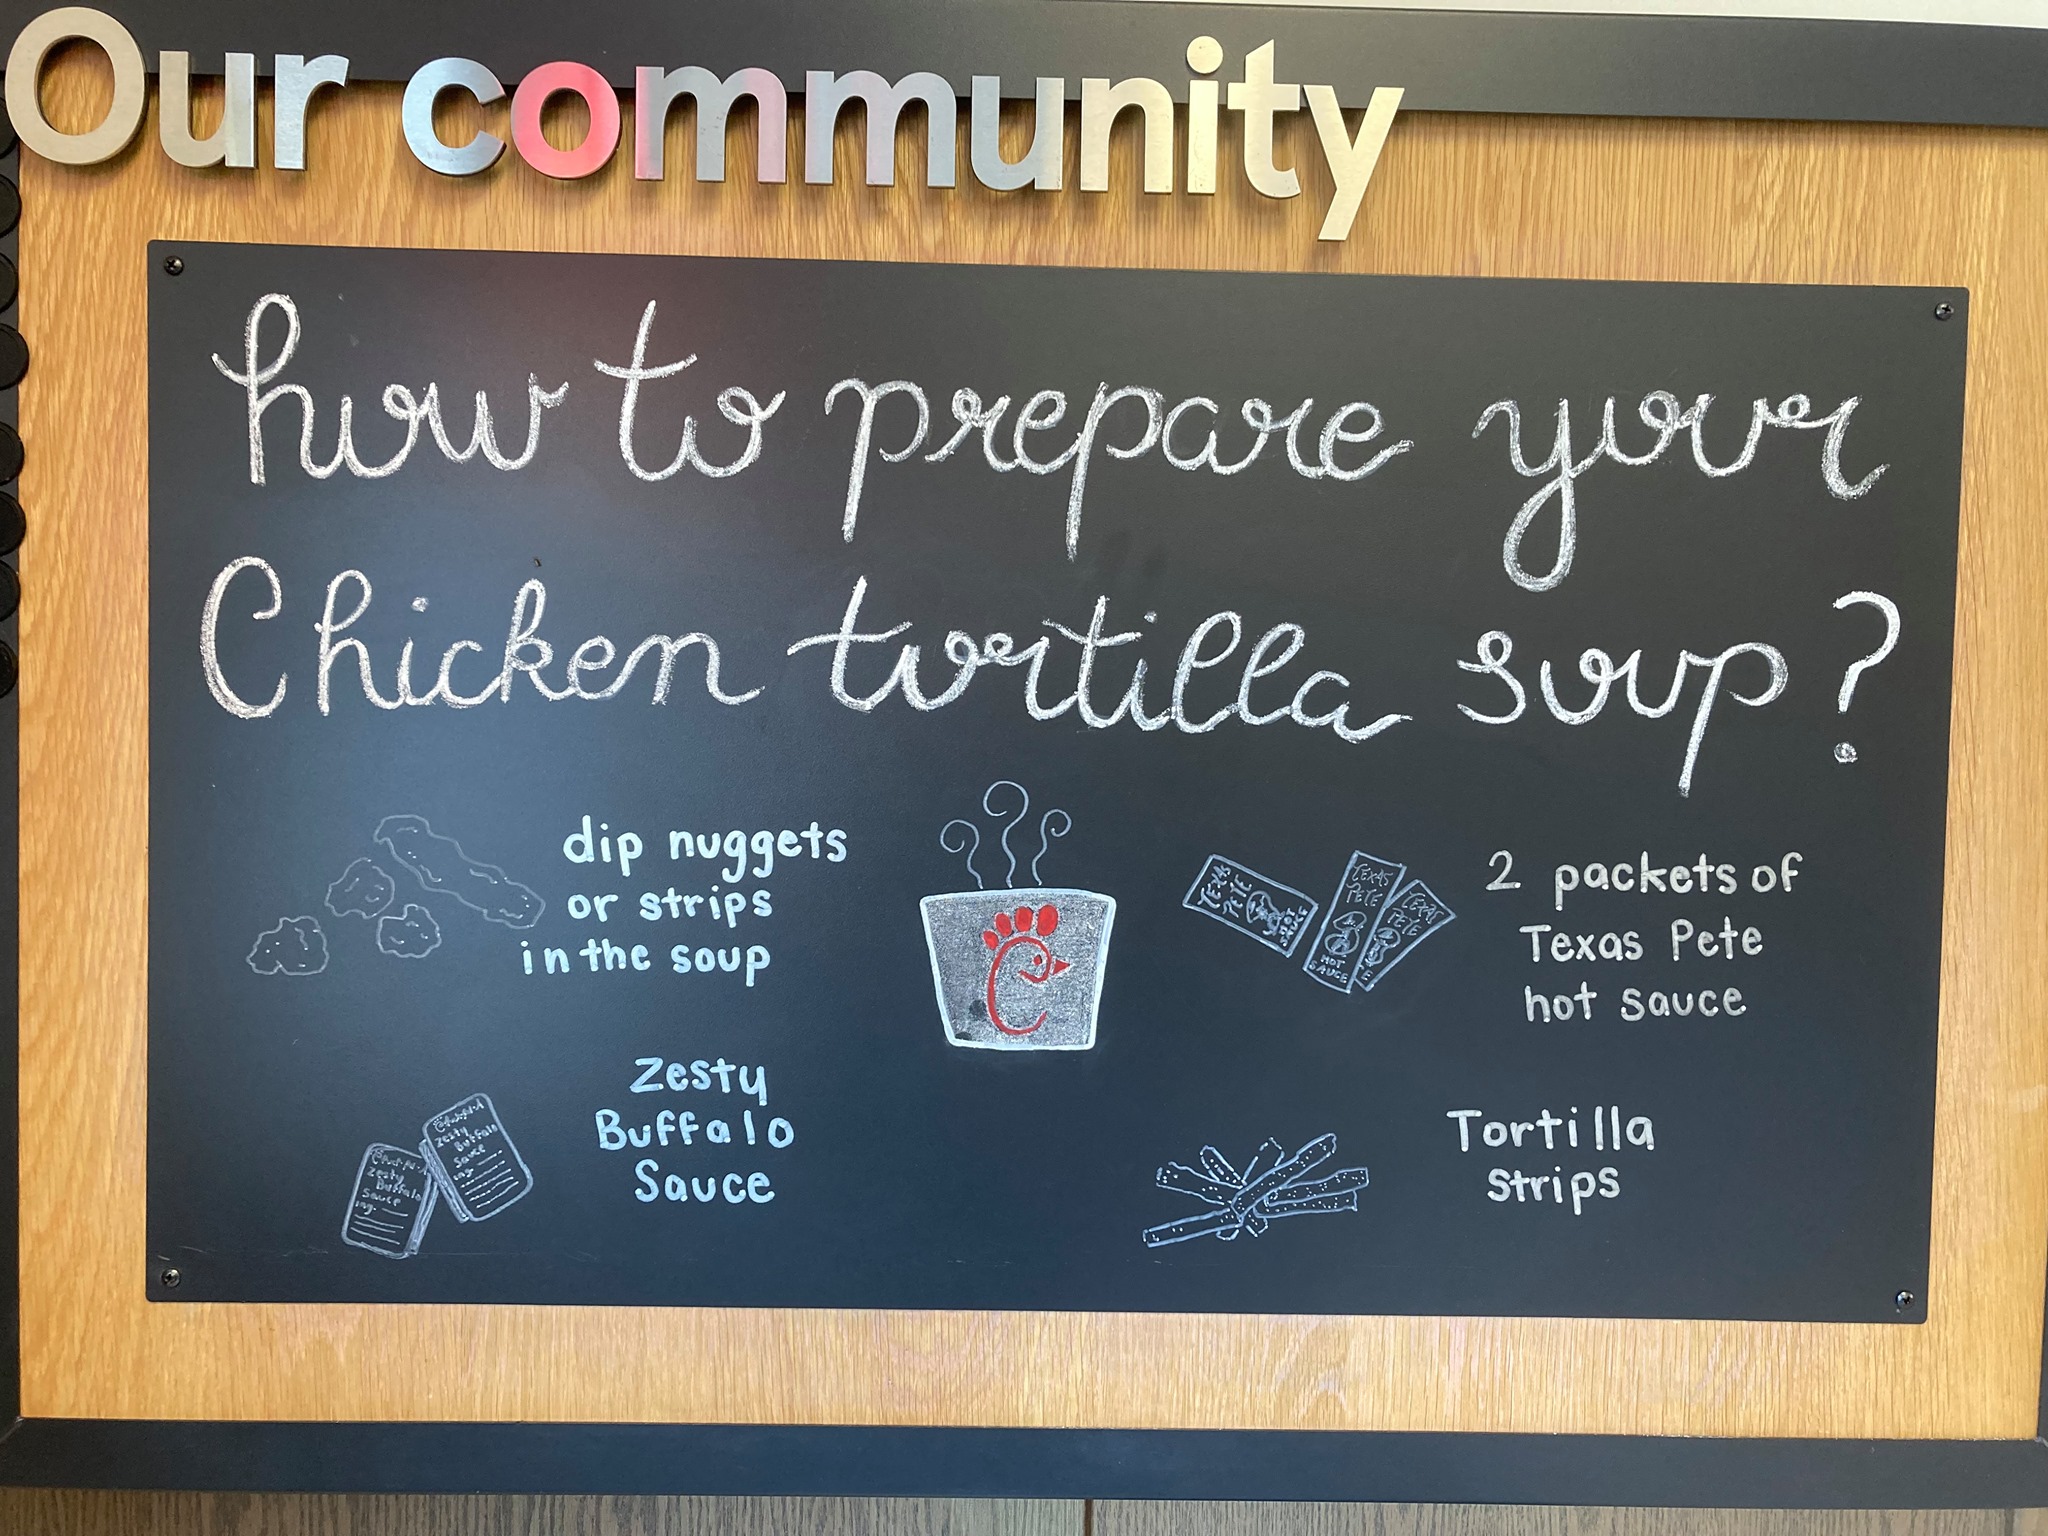 Our community
how to prepare your
Chicken tortilla soup?
dip nuggets
or strips
in the soup
2 packets of
Texas Pete
hot sauce
TEXAS
PETE
HOT
SAUCE
TEXAS
PETE
HOT
SAUCE
TEXAS
PETE
Zesty
Buffalo
Sauce
Zesty
Buffalo
Sauce
ing.
Zesty
Buffalo
Sauce
ing.
Tortilla
strips